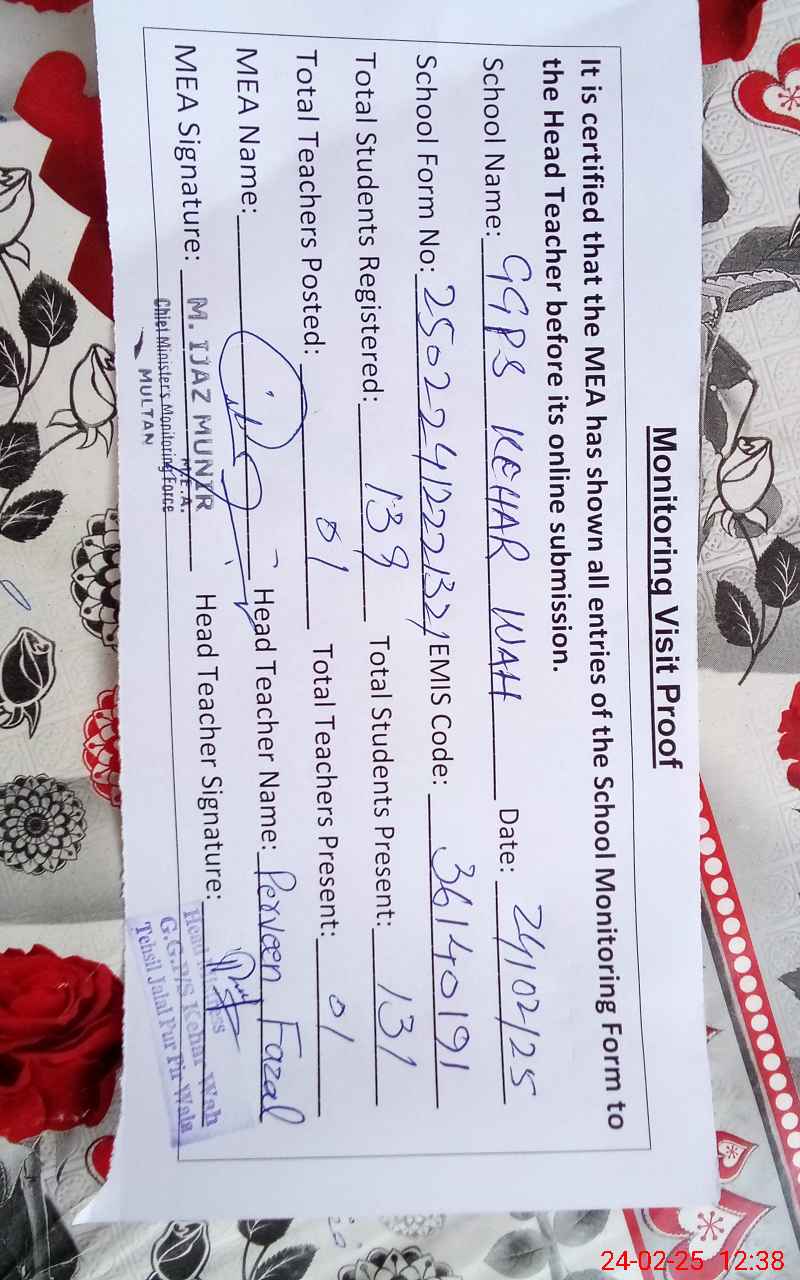 Monitoring Visit Proof
It is certified that the MEA has shown all entries of the School Monitoring Form to
the Head Teacher before its online submission.
School Name: GGPS KEHAR WAH Date: 24/02/25
School Form No: 25022412221321 EMIS Code: 36140191
Total Students Registered: 139 Total Students Present: 131
Total Teachers Posted: 01 Total Teachers Present: 01
MEA Name: Head Teacher Name: Perveen Fazal
MEA Signature: M. IJAZ MUNIR Head Teacher Signature:
M.E.A.
Chief Minister's Monitoring Force
MULTAN
Head Mistress
G.G.P/S Kehar Wah
Tehsil Jalal Pur Pir Wala
24-02-25 12:38